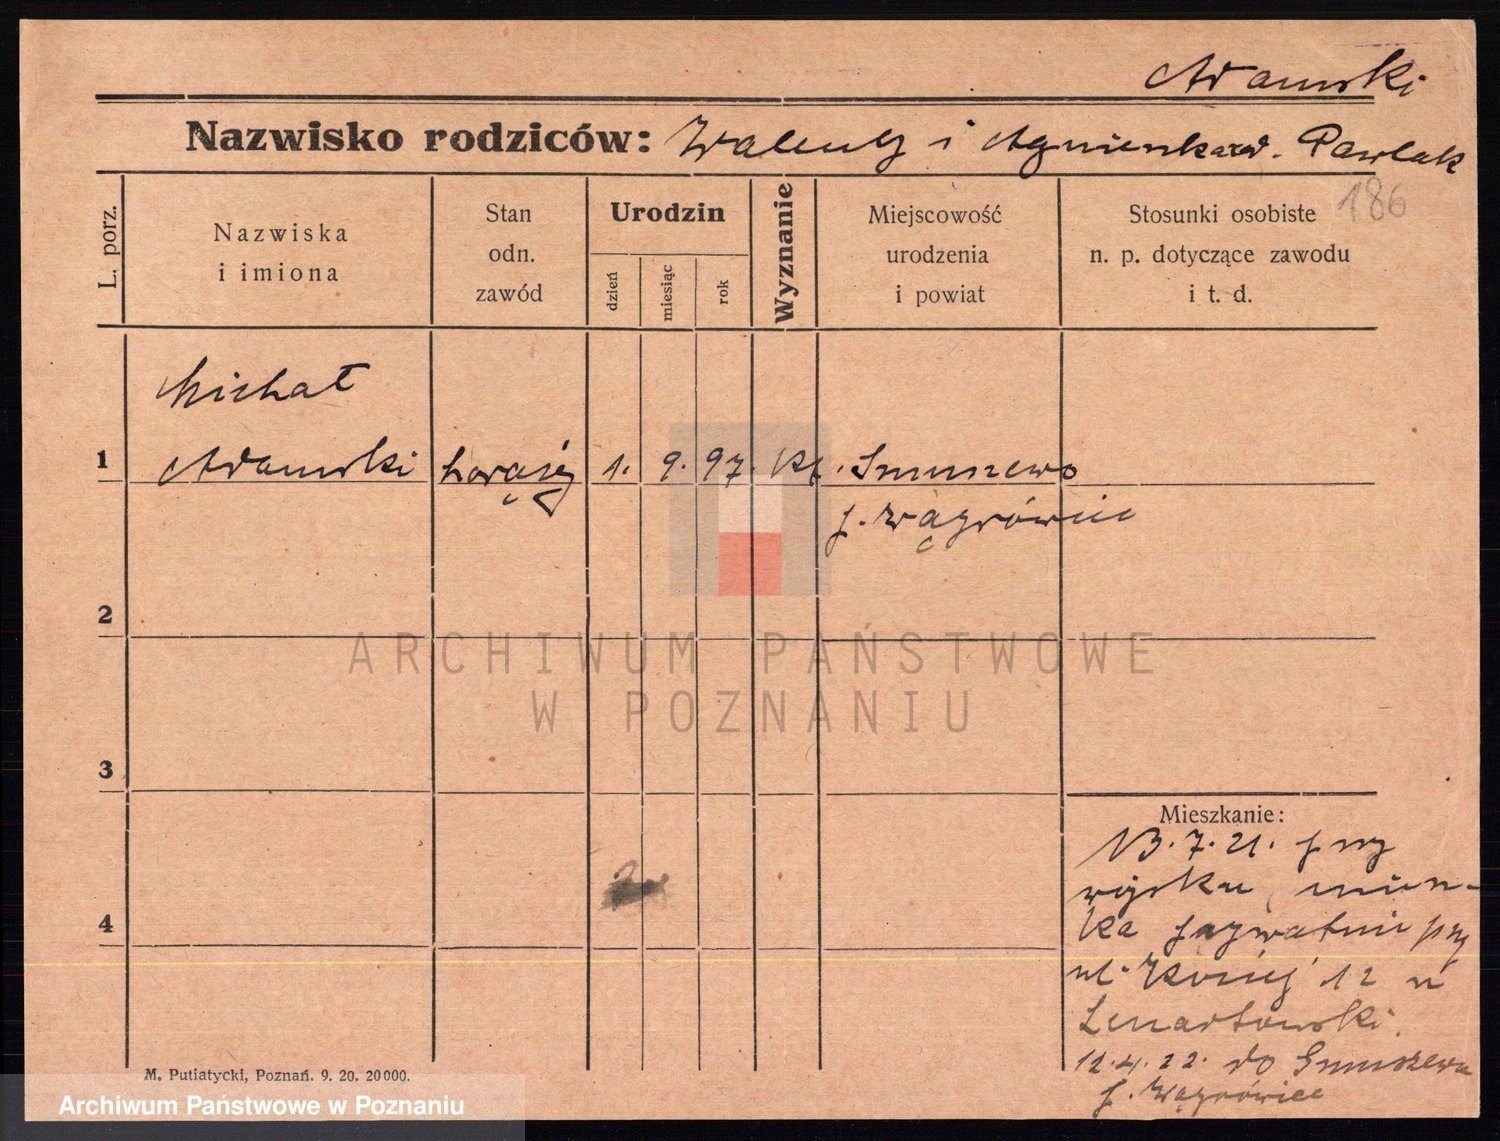 Adamski
Nazwisko rodziców: Walenty i Agnieszka ur. Pawlak
186
L. porz.
Nazwiska
i imiona
Stan
odn.
zawód
Urodzin
dzień
miesiąc
rok
Wyznanie
Miejscowość
urodzenia
i powiat
Stosunki osobiste
n. p. dotyczące zawodu
i t. d.
Michał
1 Adamski chorąży 1. 9. 97. kt. Smuszewo
p. Wągrówiec
2
ARCHIWUM PAŃSTWOWE
W POZNANIU
3
Mieszkanie:
13.7.21. przy
wojsku, miesz-
4
ka prywatnie przy
ul. 12 u
Lenartowski.
12.4.22. do Smuszewa
p. Wągrówiec
M. Putiatycki, Poznań. 9. 20. 20000.
Archiwum Państwowe w Poznaniu